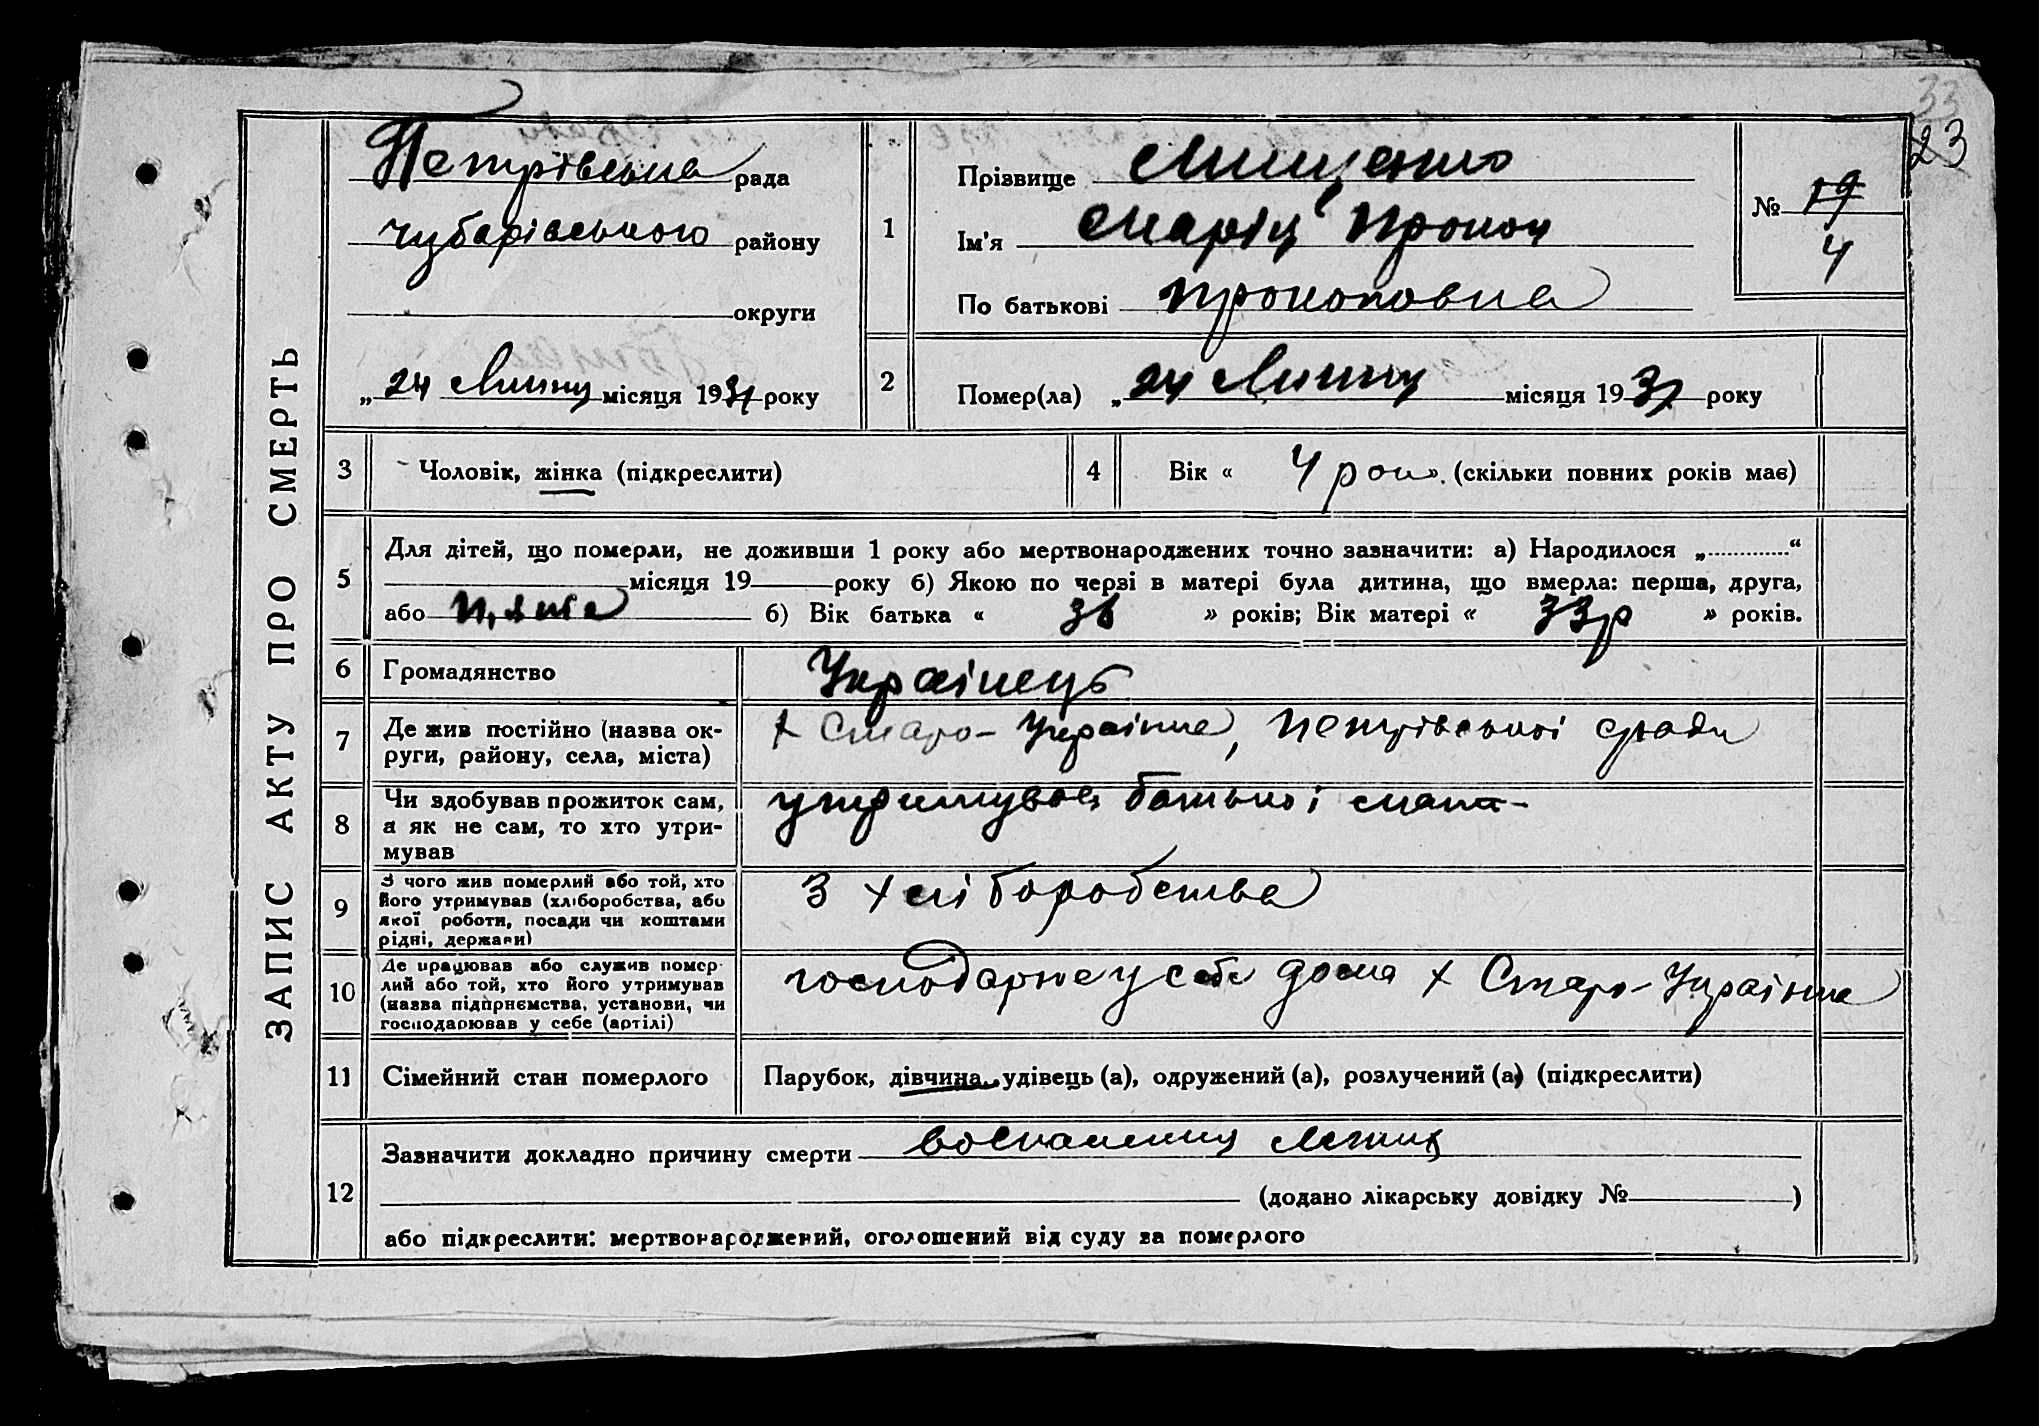 33
23
ЗАПИС АКТУ ПРО СМЕРТЬ
Петрівська рада
Чубарівського району
округи
„ 24 Липня місяця 1931 року
1
Прізвище Мищенко
Ім'я Марія Прокоп
По батькові Прокоповна
№ 19
4
2
Помер(ла) „ 24 Липня місяця 1931 року
3
Чоловік, жінка (підкреслити)
4
Вік « 4 рок ». (скільки повних років має)
5
Для дітей, що померли, не доживши 1 року або мертвонароджених точно зазначити: а) Народилося „ “
місяця 19 року б) Якою по черзі в матері була дитина, що вмерла: перша, друга,
або пята б) Вік батька « 36 » років; Вік матері « 33р » років.
6
Громадянство
Українець
7
Де жив постійно (назва ок-
руги, району, села, міста)
х Старо-Українка, Петрівської сради
8
Чи здобував прожиток сам,
а як не сам, то хто утри-
мував
утримував батько і мати-
9
З чого жив померлий або той, хто
його утримував (хліборобства, або
якої роботи, посади чи коштами
рідні, держави)
З хліборобства
10
Де працював або служив помер-
лий або той, хто його утримував
(назва підприємства, установи, чи
господарював у себе (артілі)
господарює у себе дома х Старо-Українка
11
Сімейний стан померлого
Парубок, дівчина, удівець (а), одружений (а), розлучений (а) (підкреслити)
12
Зазначити докладно причину смерти воспаления легких
(додано лікарську довідку № )
або підкреслити: мертвонароджений, оголошений від суду за померлого